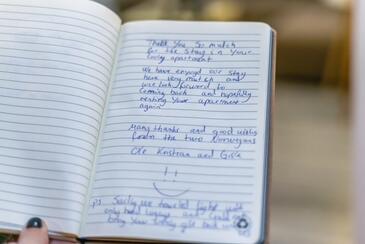 Thank you so match
for the stay in your
lovely apartment
We have enjoyd our stay
here very match and
we look forward to
coming back and hopefully
renting your apartment
again
Many thanks and good wishes
from the two Norwegians
Ole Kristian and
!!
PS Sadly we traveled light with
only hand luggage and could not
bring your lovely gift back